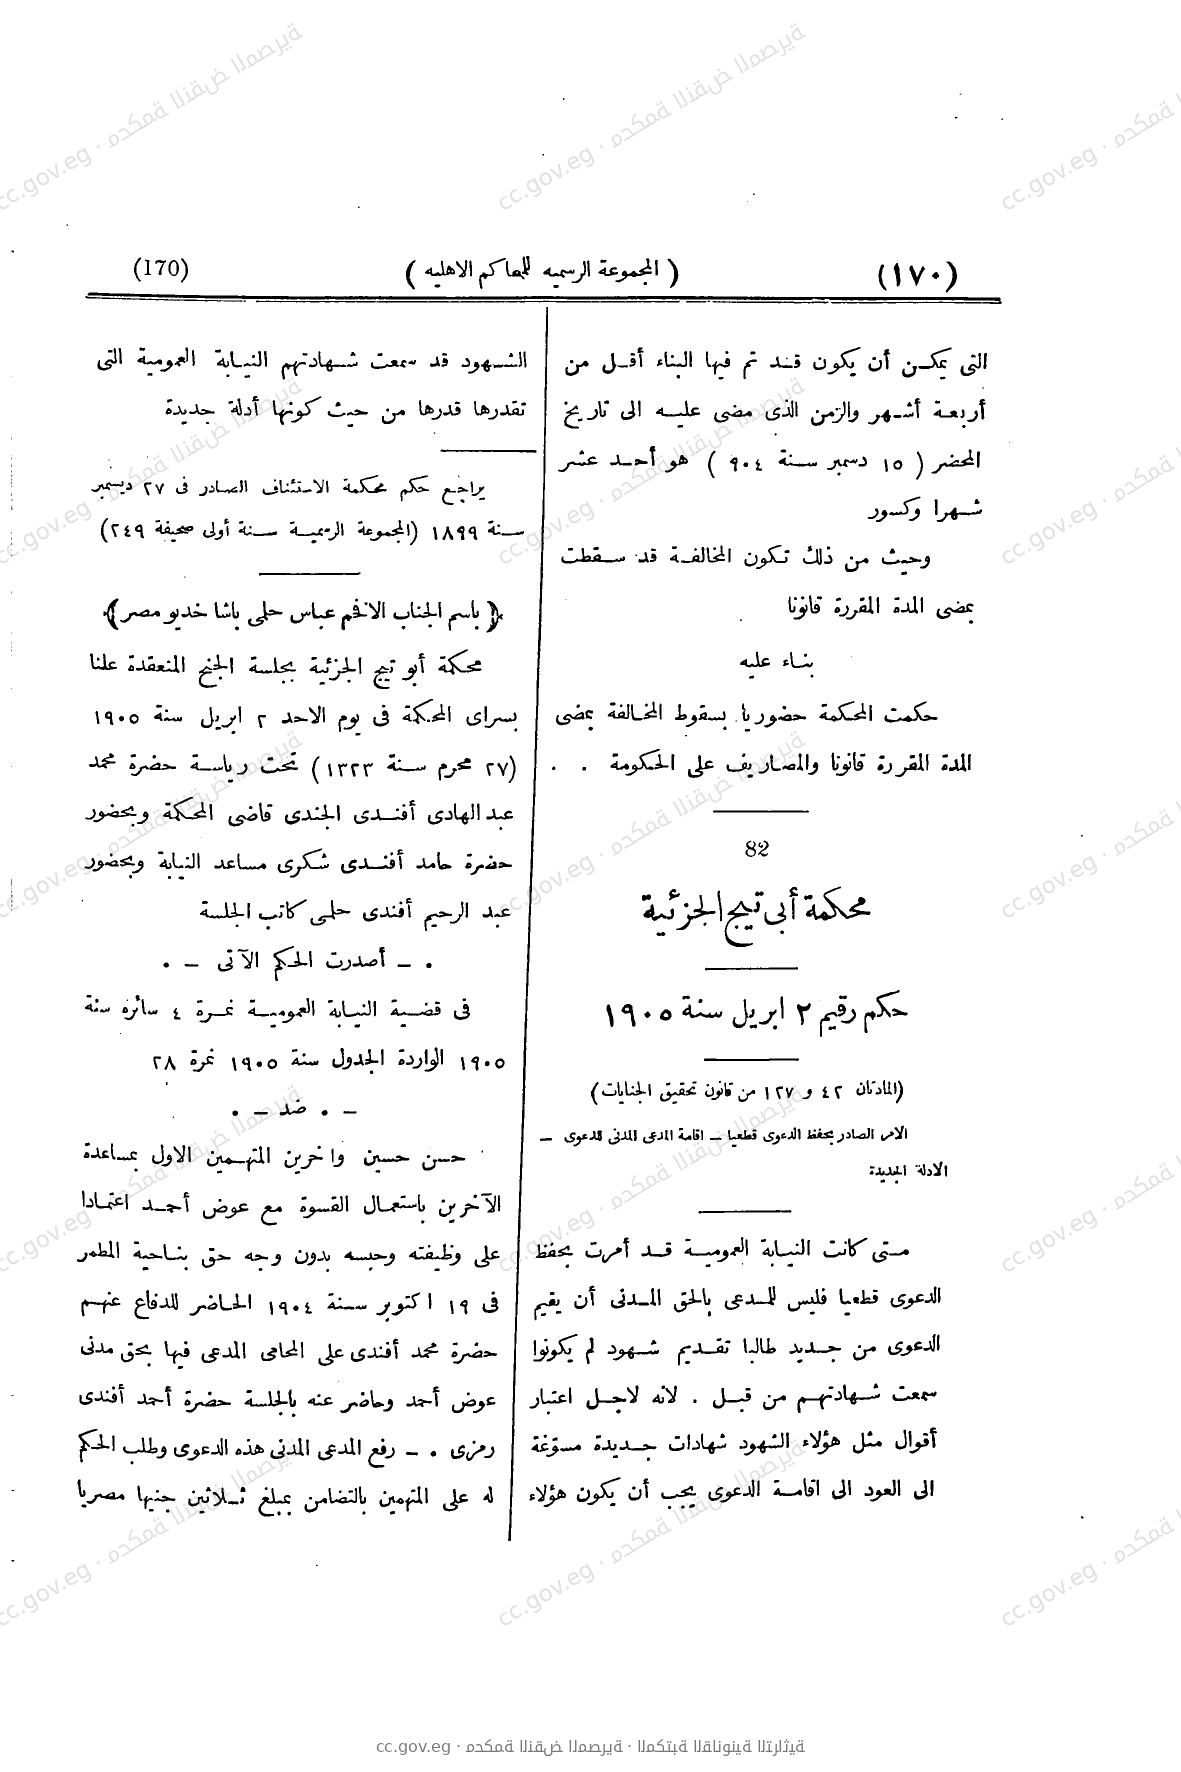 (١٧٠)
( المجموعة الرسميه للمحاكم الاهليه )
(170)
التى يمكن أن يكون قد تم فيها البناء أقل من
أربعة أشهر والزمن الذى مضى عليه الى تاريخ
المحضر ( ١٥ دسمبر سنة ٩٠٤ ) هو أحد عشر
شهرا وكسور
وحيث من ذلك تكون المخالفة قد سقطت
بمضى المدة المقررة قانونا
بناء عليه
حكمت المحكمة حضوريا بسقوط المخالفة بمضى
المدة المقررة قانونا والمصاريف على الحكومة . .
82
محكمة أبى تيج الجزئية
حكم رقيم ٢ ابريل سنة ١٩٠٥
(المادتان ٤٢ و ١٢٧ من قانون تحقيق الجنايات)
الامر الصادر بحفظ الدعوى قطعيا – اقامة المدعى المدنى للدعوى –
الادلة الجديدة
متى كانت النيابة العمومية قد أمرت بحفظ
الدعوى قطعيا فليس للمدعى بالحق المدنى أن يقيم
الدعوى من جديد طالبا تقديم شهود لم يكونوا
سمعت شهادتهم من قبل . لانه لاجل اعتبار
أقوال مثل هؤلاء الشهود شهادات جديدة مسوّغة
الى العود الى اقامة الدعوى يجب أن يكون هؤلاء
الشهود قد سمعت شهادتهم النيابة العمومية التى
تقدرها قدرها من حيث كونها أدلة جديدة
يراجع حكم محكمة الاستئناف الصادر فى ٢٧ ديسمبر
سنة ١٨٩٩ (المجموعة الرسمية سنة أولى صحيفة ٢٤٩)
﴿ باسم الجناب الافخم عباس حلمى باشا خديو مصر ﴾
محكمة أبو تيج الجزئية بجلسة الجنح المنعقدة علنا
بسراى المحكمة فى يوم الاحد ٢ ابريل سنة ١٩٠٥
(٢٧ محرم سنة ١٣٢٣) تحت رياسة حضرة محمد
عبد الهادى أفندى الجندى قاضى المحكمة وبحضور
حضرة حامد أفندى شكرى مساعد النيابة وبحضور
عبد الرحيم أفندى حلمى كاتب الجلسة
. – أصدرت الحكم الآتى – .
فى قضية النيابة العمومية نمرة ٤ سائره سنة
١٩٠٥ الواردة الجدول سنة ١٩٠٥ نمرة ٢٨
– . ضد – .
حسن حسين واخرين المتهمين الاول بمساعدة
الآخرين باستعمال القسوة مع عوض أحمد اعتمادا
على وظيفته وحبسه بدون وجه حق بناحية المطمر
فى ١٩ اكتوبر سنة ١٩٠٤ الحاضر للدفاع عنهم
حضرة محمد أفندى على المحامى المدعى فيها بحق مدنى
عوض أحمد وحاضر عنه بالجلسة حضرة أحمد أفندى
رمزى . – رفع المدعى المدنى هذه الدعوى وطلب الحكم
له على المتهمين بالتضامن بمبلغ ثلاثين جنيها مصريا
cc.gov.eg · محكمة النقض المصرية · المكتبة القانونية التراثية